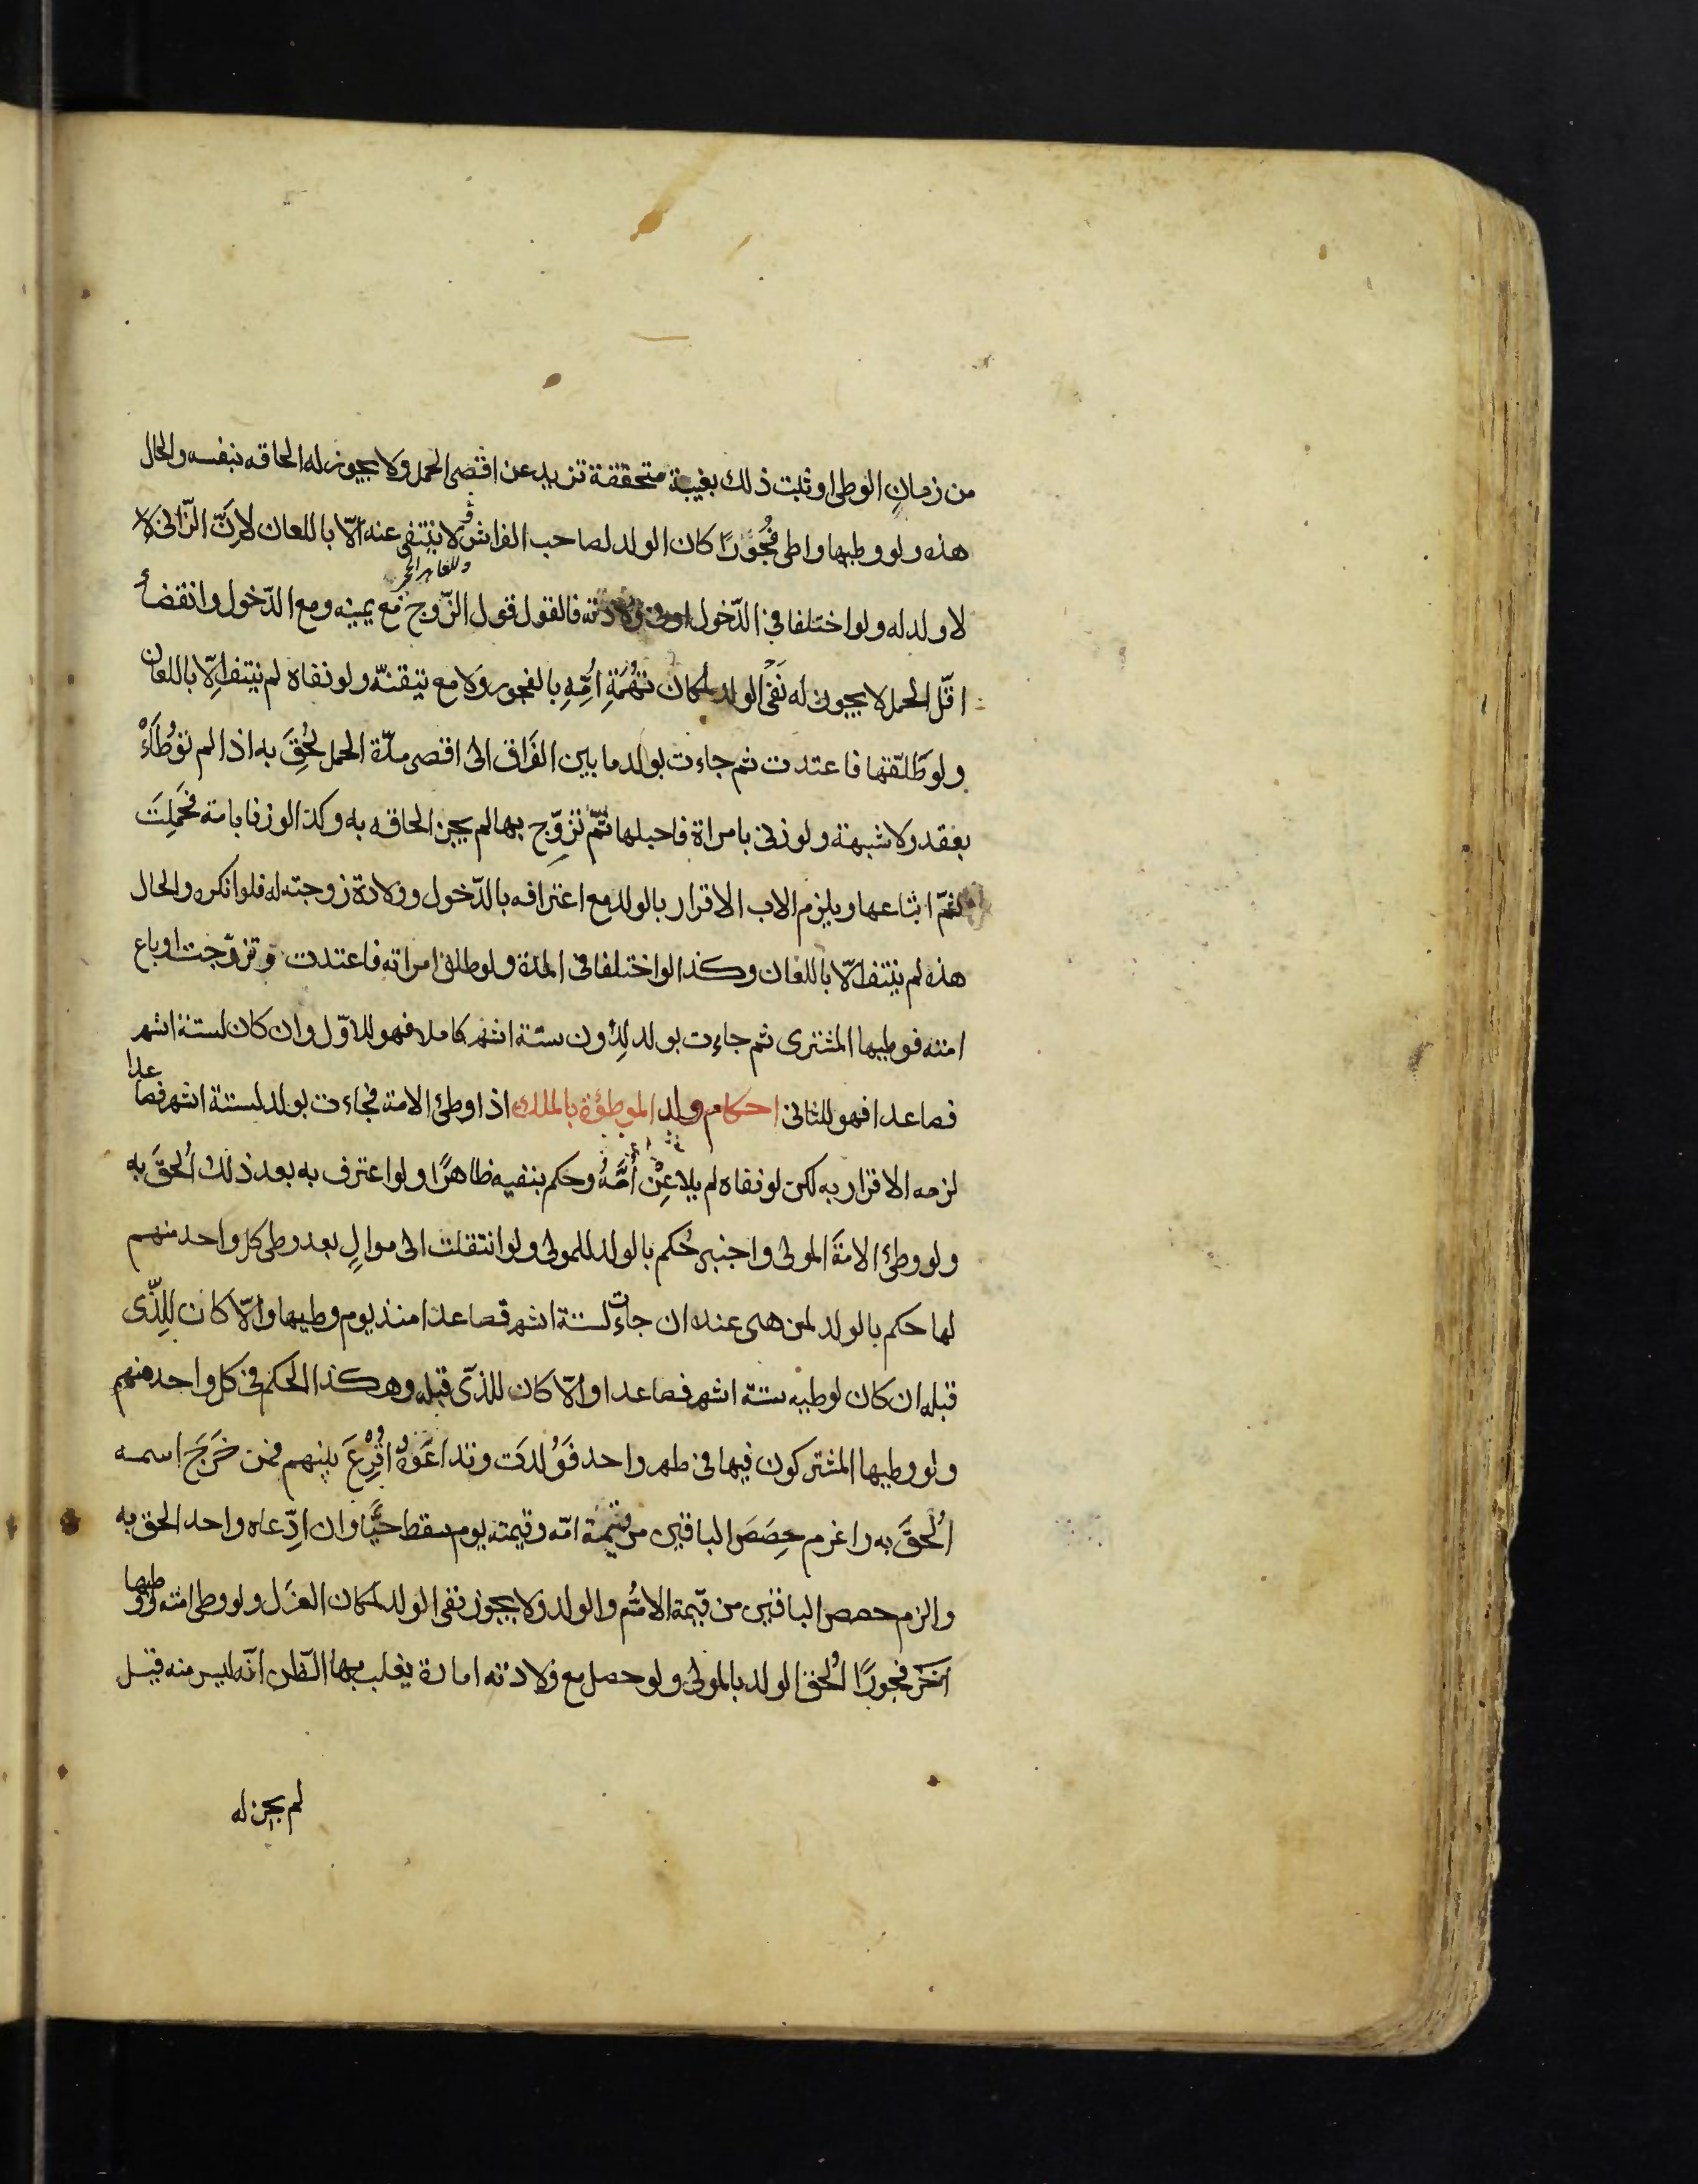 من زمانِ الوطى او ثبت ذلك بغيبة متحققة تزيد عن اقصى الحمل ولا يجوز له الحاقه بنفسه والحال
هذه ولو وطيها واطى فُجُورًا كان الولد لصاحب الفراش ولا ينتفى عنه الّا باللعان لانَّ الزّانى لا
وللعاهر الحجر
لا ولد له ولو اختلفا فى الدّخول او فى ولادته فالقول قول الزّوج مع يمينه ومع الدّخول وانقضاء
اقلّ الحمل لا يجوز له نَفْىُ الولد لمكان تُهْمَةِ اُمِّهِ بالفجور ولا مع تيقنّه ولو نفاه لم ينتف الّا باللعان
ولو طَلّقها فاعتدت ثم جاءت بولد ما بين الفَراق الى اقصى مدّة الحمل لُحِقَ به اذا لم تُوطَاءْ
بعقد ولا شبهة ولو زنى بامراة فاحبلها ثُمّ تزوّج بها لم يجز الحاقه به وكذا لو زنا بامة فحَمِلَت
ثمّ ابتاعها ويلزم الاب الاقرار بالولد مع اعترافه بالدّخول وولادة زوجته له فلو انكره والحال
هذه لم ينتف الّا باللعان وكذا لو اختلفا فى المدّة ولو طلق امراته فاعتدت وتزوّجت او باع
امته فوطيها المشترى ثم جاءت بولد لِدُون ستّة اشهر كاملا فهو للاوّل وان كان لستة اشهر
فصاعدا فهو للثانى احكام ولد الموطؤة بالملك اذا وطئ الامة فجاءت بولد لستة اشهر فصاعدا
لزمه الاقرار به لكن لو نفاه لم يلاعِنْ اُمَّهُ وحكم بنفيه ظاهرًا ولو اعترف به بعد ذلك اُلحقَ به
ولو وطئ الامَةَ المولى واجنبى حُكم بالولد للمولى ولو انتقلت الى موالٍ بعد وطى كل واحد منهم
لها حكم بالولد لمن هى عنده ان جاءت لستة اشهر فصاعدا منذ يوم وطيها والّا كان للّذى
قبله ان كان لوطيه ستة اشهر فصاعدا والّا كان للذّى قبله وهكذا الحكم فى كل واحد منهم
ولو وطيها المشتركون فيها فى طهر واحد فَوَلدَت وتداعَوهُ اُقْرِعَ بينهم فمن خَرَجَ اسمه
اُلْحقَ به واغرم حِصَصَ الباقين من قيمة امّه وقيمته يوم سقط حَيًّا وان ادّعاه واحد الحق به
والزم حصص الباقين من قيمة الامّ والولد ولا يجوز نفى الولد لمكان العزل ولو وطى امته ووطيها
آخَرُ فجورًا اُلحق الولد بالمولى ولو حصل مع ولادته امارة يغلب بها الظن انّه ليس منه قيل
لم يجز له